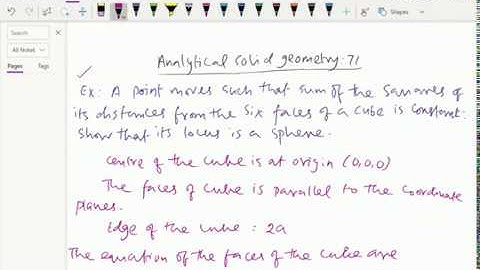 Shapes
Search
All Notes
Pages Tags
Analytical solid geometry: 71
Ex: A point moves such that sum of the Squares of
its distances from the six faces of a cube is constant:
show that its locus is a sphere.
Centre of the cube is at origin (0,0,0)
The faces of cube is parallel to the coordinate
planes.
Edge of the cube : 2a
The equation of the faces of the cube are